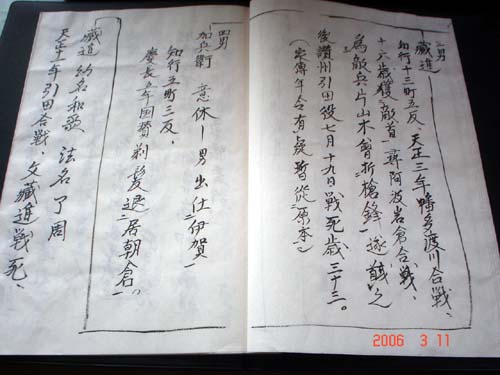 三男
藏進
知行十三町五反、天正三年幡多渡川合戦、
十六歳獲敵首、尋阿波岩倉合戦、
為敵兵片山木曾折槍鋒遂馘之
後讃州引田役七月十九日戦死歳三十三。
(家傳年令有疑暫従原本)
四男
加兵衛 意休一男出仕伊賀
知行五町三反、
慶長五年国替剃髪退居朝倉
藏進 幼名和歌 法名了周
天正十一年引田合戦、父藏進戦死、
2006 3 11